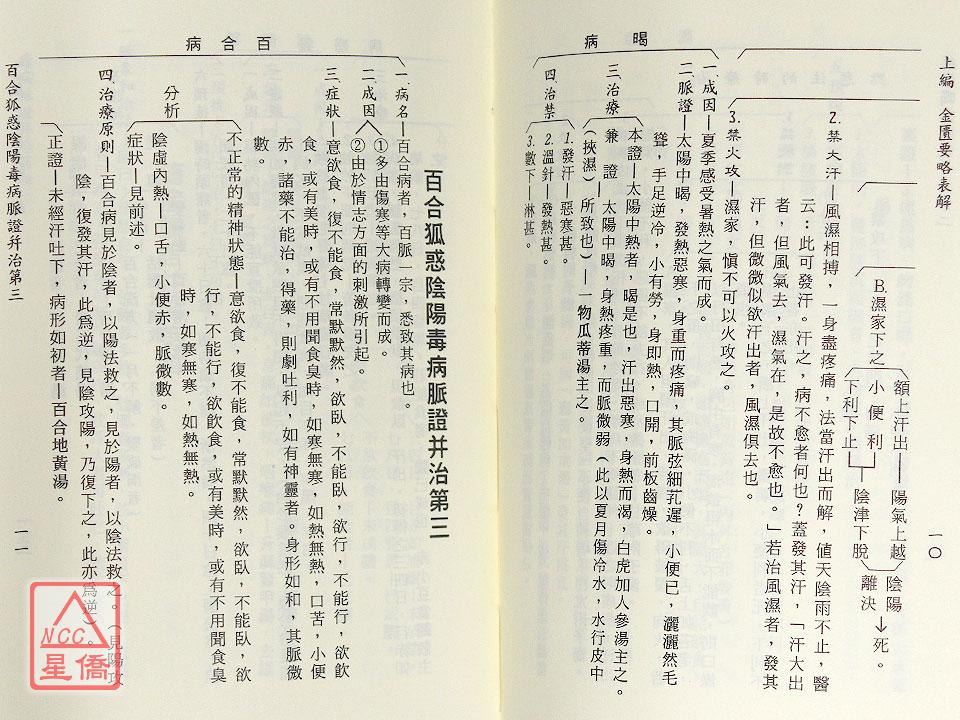 上編　金匱要略表解
一〇
B.濕家下之
額上汗出——陽氣上越
小便利
下利下止
陰津下脫
陰陽離決→死。
2.禁大汗—風濕相搏，一身盡疼痛，法當汗出而解，値天陰雨不止，醫
云：此可發汗。汗之，病不愈者何也？蓋發其汗，「汗大出
者，但風氣去，濕氣在，是故不愈也。」若治風濕者，發其
汗，但微微似欲汗出者，風濕俱去也。
3.禁火攻—濕家，愼不可以火攻之。
暍病
一.成因—夏季感受暑熱之氣而成。
二.脈證—太陽中暍，發熱惡寒，身重而疼痛，其脈弦細芤遲，小便已，灑灑然毛
聳，手足逆冷，小有勞，身即熱，口開，前板齒燥。
三.治療
本證—太陽中熱者，暍是也，汗出惡寒，身熱而渴，白虎加人參湯主之。
兼證（挾濕）
太陽中暍，身熱疼重，而脈微弱（此以夏月傷冷水，水行皮中
所致也）—一物瓜蒂湯主之。
四.治禁
1.發汗—惡寒甚。
2.溫針—發熱甚。
3.數下—淋甚。
百合狐惑陰陽毒病脈證并治第三
百合病
一.病名—百合病者，百脈一宗，悉致其病也。
二.成因
①多由傷寒等大病轉變而成。
②由於情志方面的刺激所引起。
三.症狀—意欲食，復不能食，常默默然，欲臥，不能臥，欲行，不能行，欲飲
食，或有美時，或有不用聞食臭時，如寒無寒，如熱無熱，口苦，小便
赤，諸藥不能治，得藥，則劇吐利，如有神靈者。身形如和，其脈微
數。
分析
不正常的精神狀態—意欲食，復不能食，常默默然，欲臥，不能臥，欲
行，不能行，欲飲食，或有美時，或有不用聞食臭
時，如寒無寒，如熱無熱。
陰虛內熱—口舌，小便赤，脈微數。
症狀—見前述。
四.治療原則—百合病見於陰者，以陽法救之，見於陽者，以陰法救之。（見陽攻
陰，復發其汗，此爲逆，見陰攻陽，乃復下之，此亦爲逆）。
正證—未經汗吐下，病形如初者—百合地黃湯。
百合狐惑陰陽毒病脈證并治第三
一一
NCC
星僑